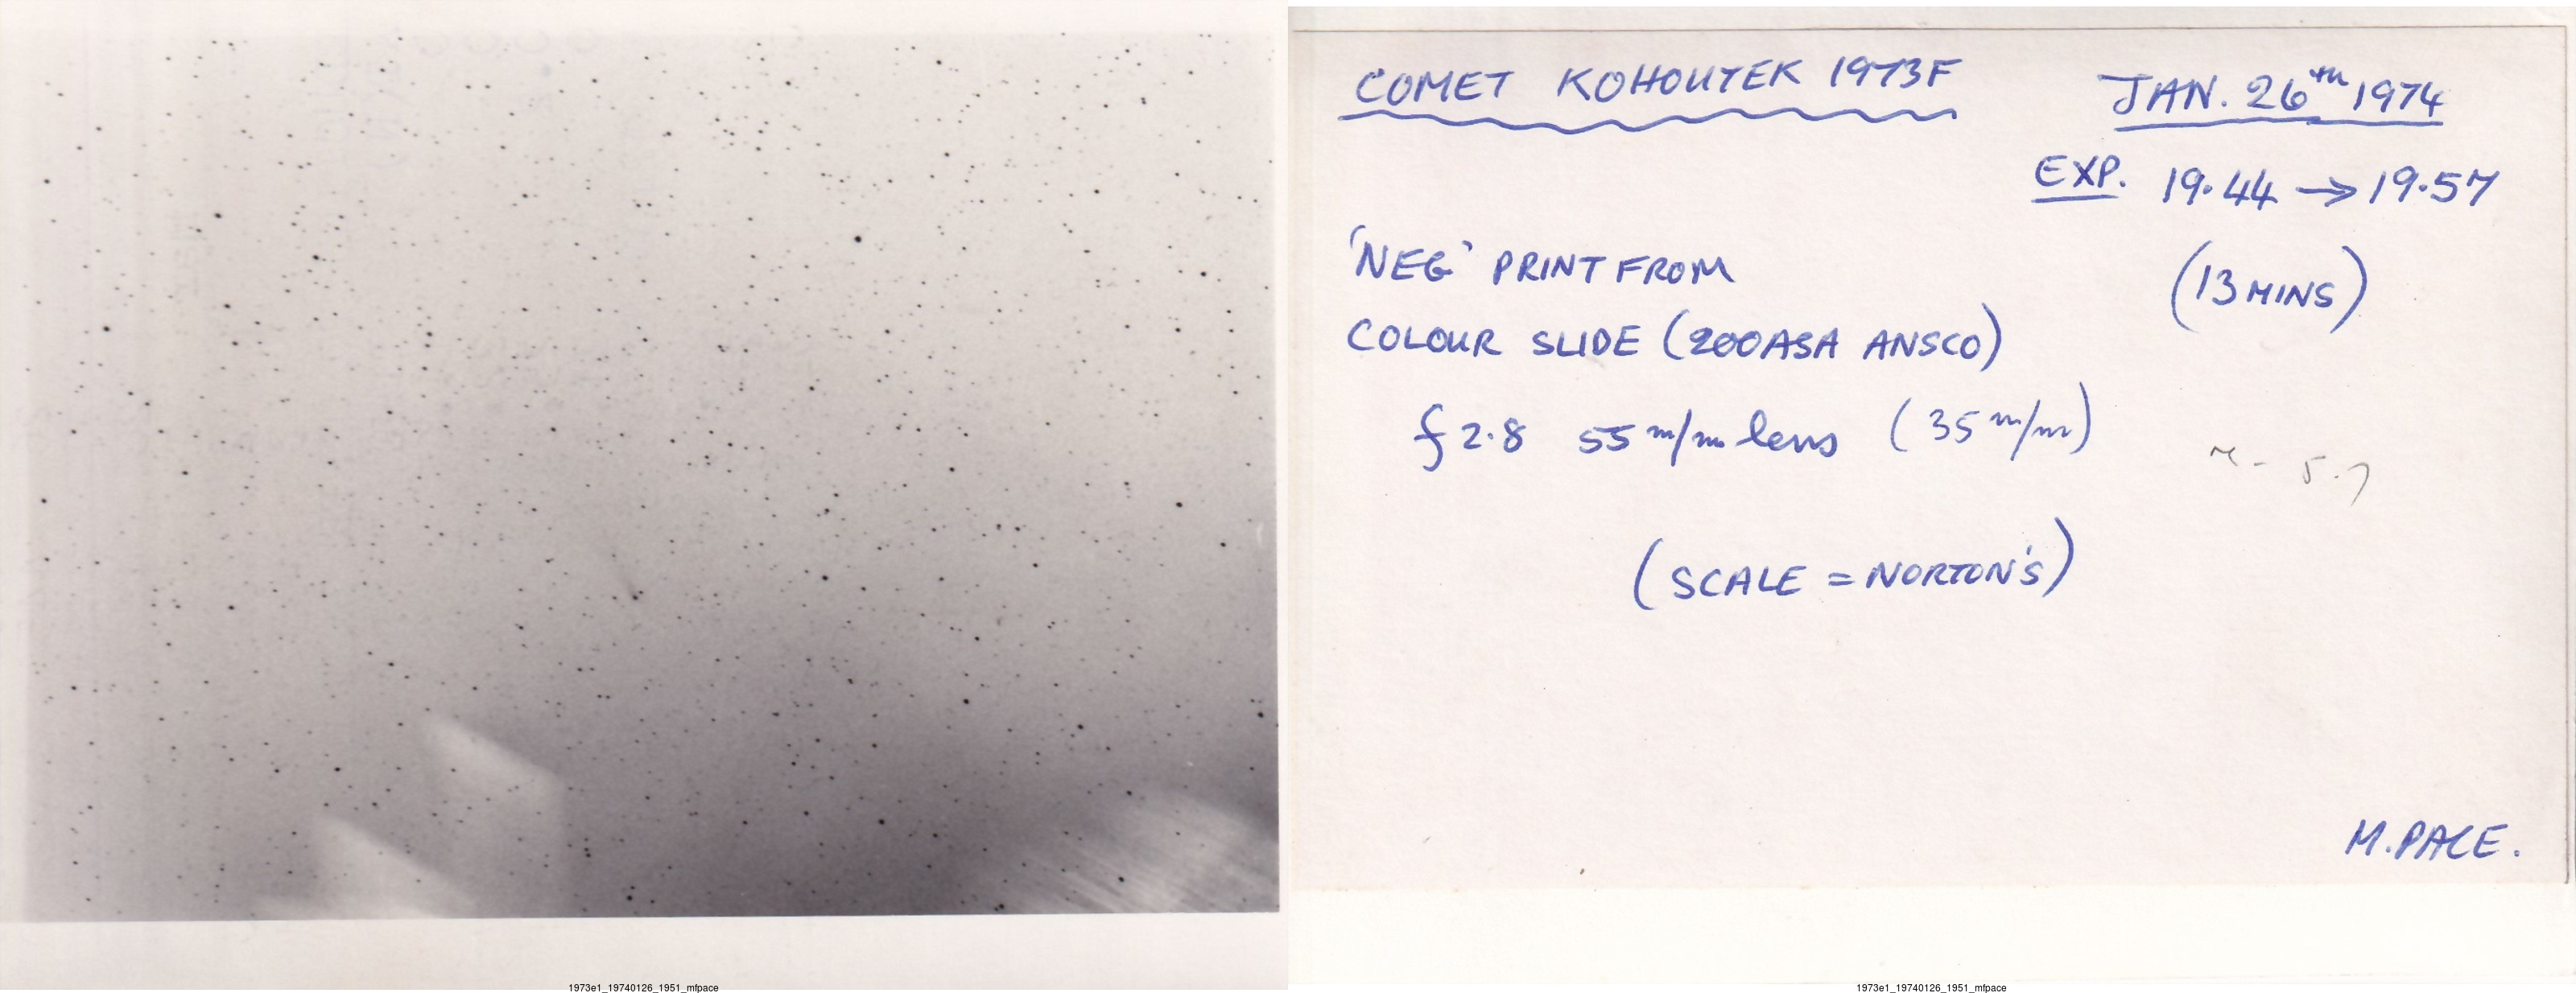 COMET KOHOUTEK 1973F
JAN. 26th 1974
EXP. 19.44 → 19.57
(13 MINS)
'NEG' PRINT FROM
COLOUR SLIDE (200ASA ANSCO)
f2.8 55 m/m lens (35 m/m)
5.7
(SCALE = NORTON'S)
M.PACE.
1973e1_19740126_1951_mfpace
1973e1_19740126_1951_mfpace